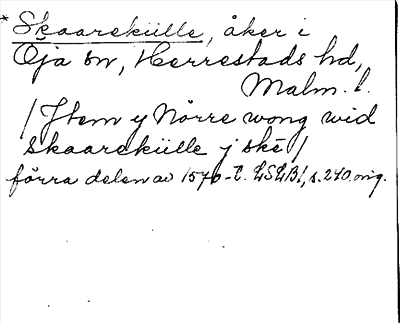 * Skaarekülle, åker i
Öja sn, Herrestads hd,
Malm. l.
/Jtem y Nörre wong wid
skaarekülle j skē/
förra delen av 1570-t. LSLB1, s. 210 orig.